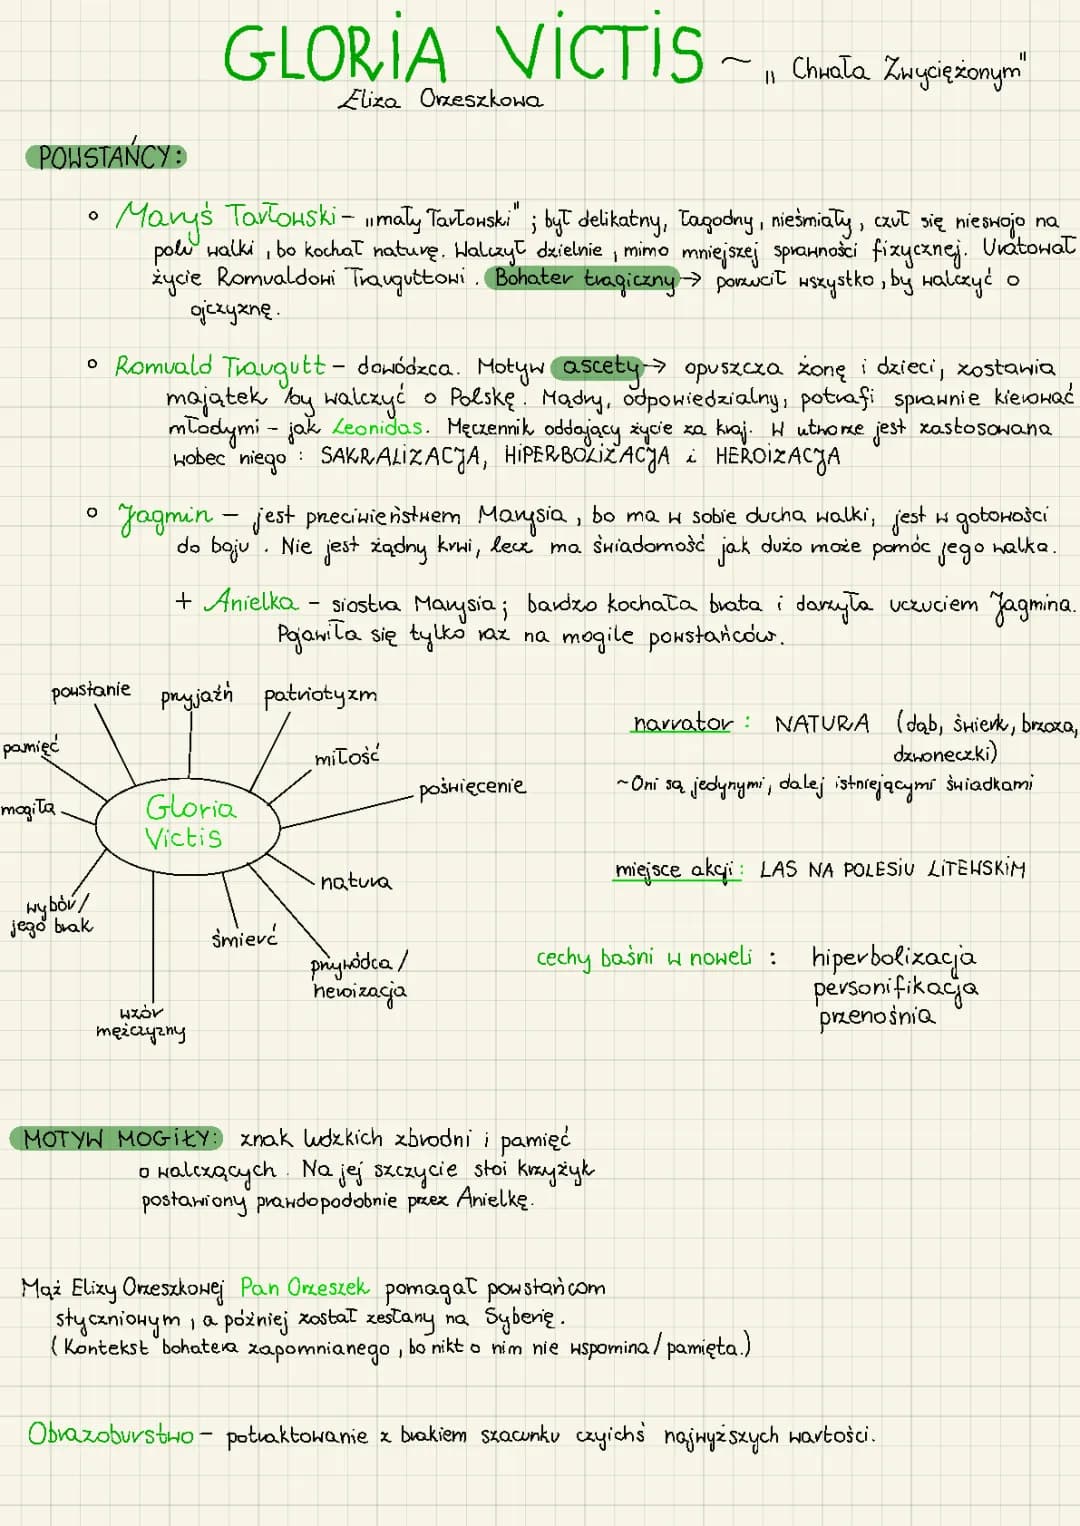 GLORIA VICTIS ~ „Chwała Zwyciężonym"
Eliza Orzeszkowa
POWSTAŃCY:
◦ Maryś Tarłowski – „mały Tarłowski" ; był delikatny, łagodny, nieśmiały, czuł się nieswojo na
polu walki, bo kochał naturę. Walczył dzielnie, mimo mniejszej sprawności fizycznej. Uratował
życie Romualdowi Trauguttowi. Bohater tragiczny → porzucił wszystko, by walczyć o
ojczyznę.
◦ Romuald Traugutt – dowódzca. Motyw ascety → opuszcza żonę i dzieci, zostawia
majątek by walczyć o Polskę. Mądry, odpowiedzialny, potrafi sprawnie kierować
młodymi – jak Leonidas. Męczennik oddający życie za kraj. W utworze jest zastosowana
wobec niego : SAKRALIZACJA, HIPERBOLIZACJA i HEROIZACJA
◦ Jagmin – jest przeciwieństwem Marysia, bo ma w sobie ducha walki, jest w gotowości
do boju. Nie jest żądny krwi, lecz ma świadomość jak dużo może pomóc jego walka.
+ Anielka – siostra Marysia; bardzo kochała brata i darzyła uczuciem Jagmina.
Pojawiła się tylko raz na mogile powstańców.
powstanie przyjaźń patriotyzm
narrator : NATURA (dąb, świerk, brzoza,
dzwoneczki)
pamięć
miłość
poświęcenie
~Oni są jedynymi, dalej istniejącymi świadkami
mogiła
Gloria
Victis
miejsce akcji : LAS NA POLESIU LITEWSKIM
natura
wybór/
jego brak
śmierć
przywódca/
heroizacja
cechy baśni w noweli : hiperbolizacja
personifikacja
przenośnia
wzór
mężczyzny
MOTYW MOGIŁY: znak ludzkich zbrodni i pamięć
o walczących. Na jej szczycie stoi krzyżyk
postawiony prawdopodobnie przez Anielkę.
Mąż Elizy Orzeszkowej Pan Orzeszek pomagał powstańcom
styczniowym, a później został zesłany na Syberię.
(Kontekst bohatera zapomnianego, bo nikt o nim nie wspomina/pamięta.)
Obrazoburstwo – potraktowanie z brakiem szacunku czyichś najwyższych wartości.